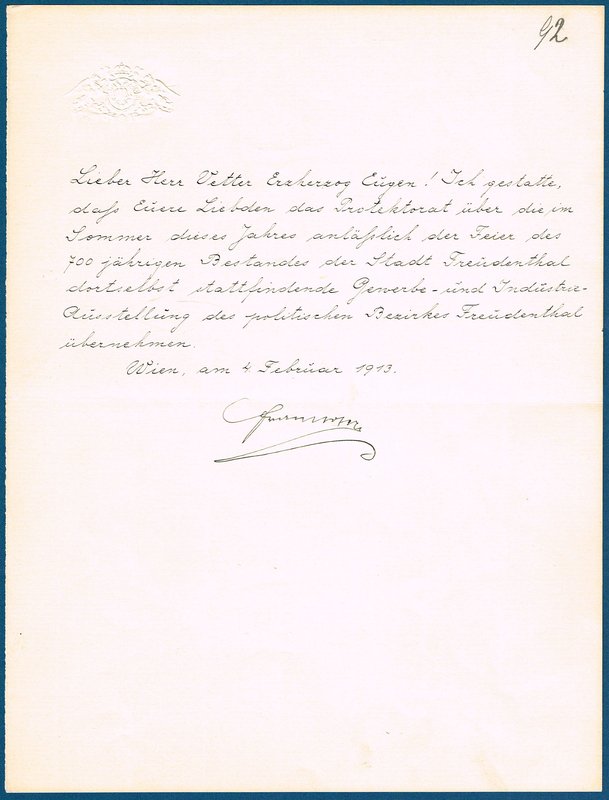 92
Lieber Herr Vetter Erzherzog Eugen! Ich gestatte,
daß Euere Liebden das Protektorat über die im
Sommer dieses Jahres anläßlich der Feier des
700 jährigen Bestandes der Stadt Freudenthal
dortselbst stattfindende Gewerbe- und Industrie-
Ausstellung des politischen Bezirkes Freudenthal
übernehmen.
Wien, am 4. Februar 1913.